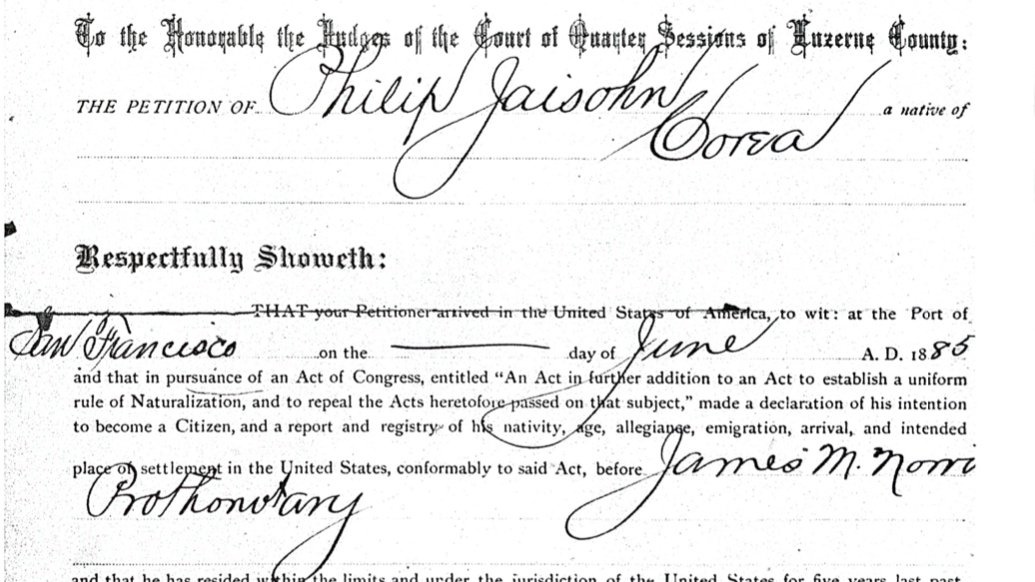 To the Honorable the Judges of the Court of Quarter Sessions of Luzerne County:
THE PETITION OF Philip Jaisohn a native of
Corea
Respectfully Showeth:
THAT your Petitioner arrived in the United States of America, to wit: at the Port of
San Francisco on the day of June A. D. 1885
and that in pursuance of an Act of Congress, entitled "An Act in further addition to an Act to establish a uniform
rule of Naturalization, and to repeal the Acts heretofore passed on that subject," made a declaration of his intention
to become a Citizen, and a report and registry of his nativity, age, allegiance, emigration, arrival, and intended
place of settlement in the United States, conformably to said Act, before James M. Norri
Prothonotary
and that he has resided within the limits and under the jurisdiction of the United States for five years last past,